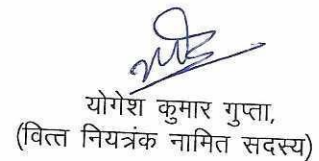 योगेश कुमार गुप्ता,
(वित्त नियत्रंक नामित सदस्य)